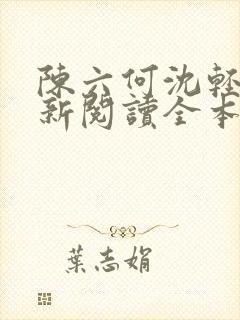 陳六何沈輕
新閱讀全本
葉志娟